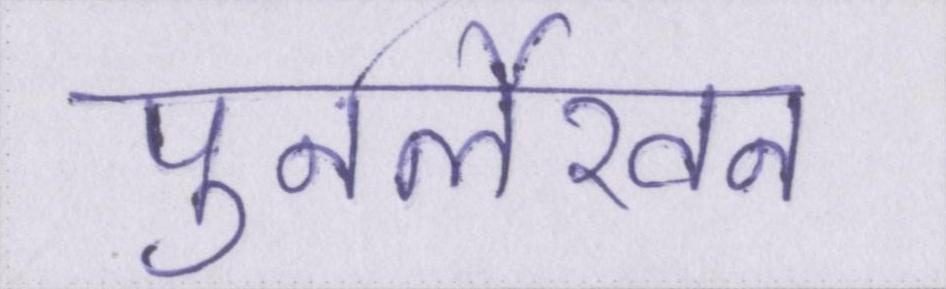 पुनर्लेखन